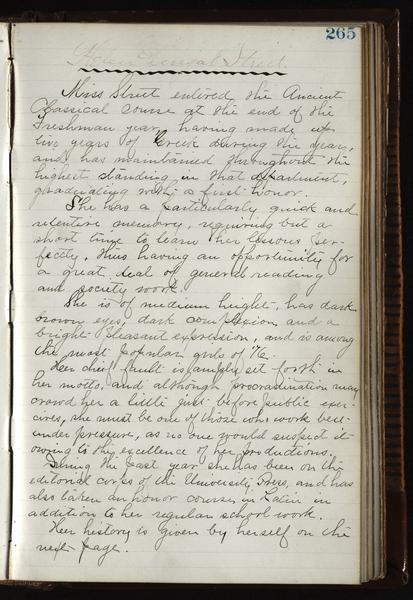 265
Street
Miss Street entered the Ancient
Classical course at the end of the
Freshman year, having made up
two years of Greek during the year,
and has maintained throughout the
highest standing in that department,
graduating with a first honor.
She has a particularly quick and
retentive memory, requiring but a
short time to learn her lessons per-
fectly, thus having an opportunity for
a great deal of general reading
and society work.
She is of medium height, has dark
brown eyes, dark complexion and a
bright pleasant expression, and is among
the most popular girls of '86.
Her chief fault is amply set forth in
her motto, and although procrastination may
crowd her a little just before public exer-
cises, she must be one of those who work best
under pressure, as no one would suspect it
owing to the excellence of her productions.
During the past year she has been on the
editorial corps of the University Press, and has
also taken an honor course in Latin in
addition to her regular school work.
Her history is given by herself on the
next page.